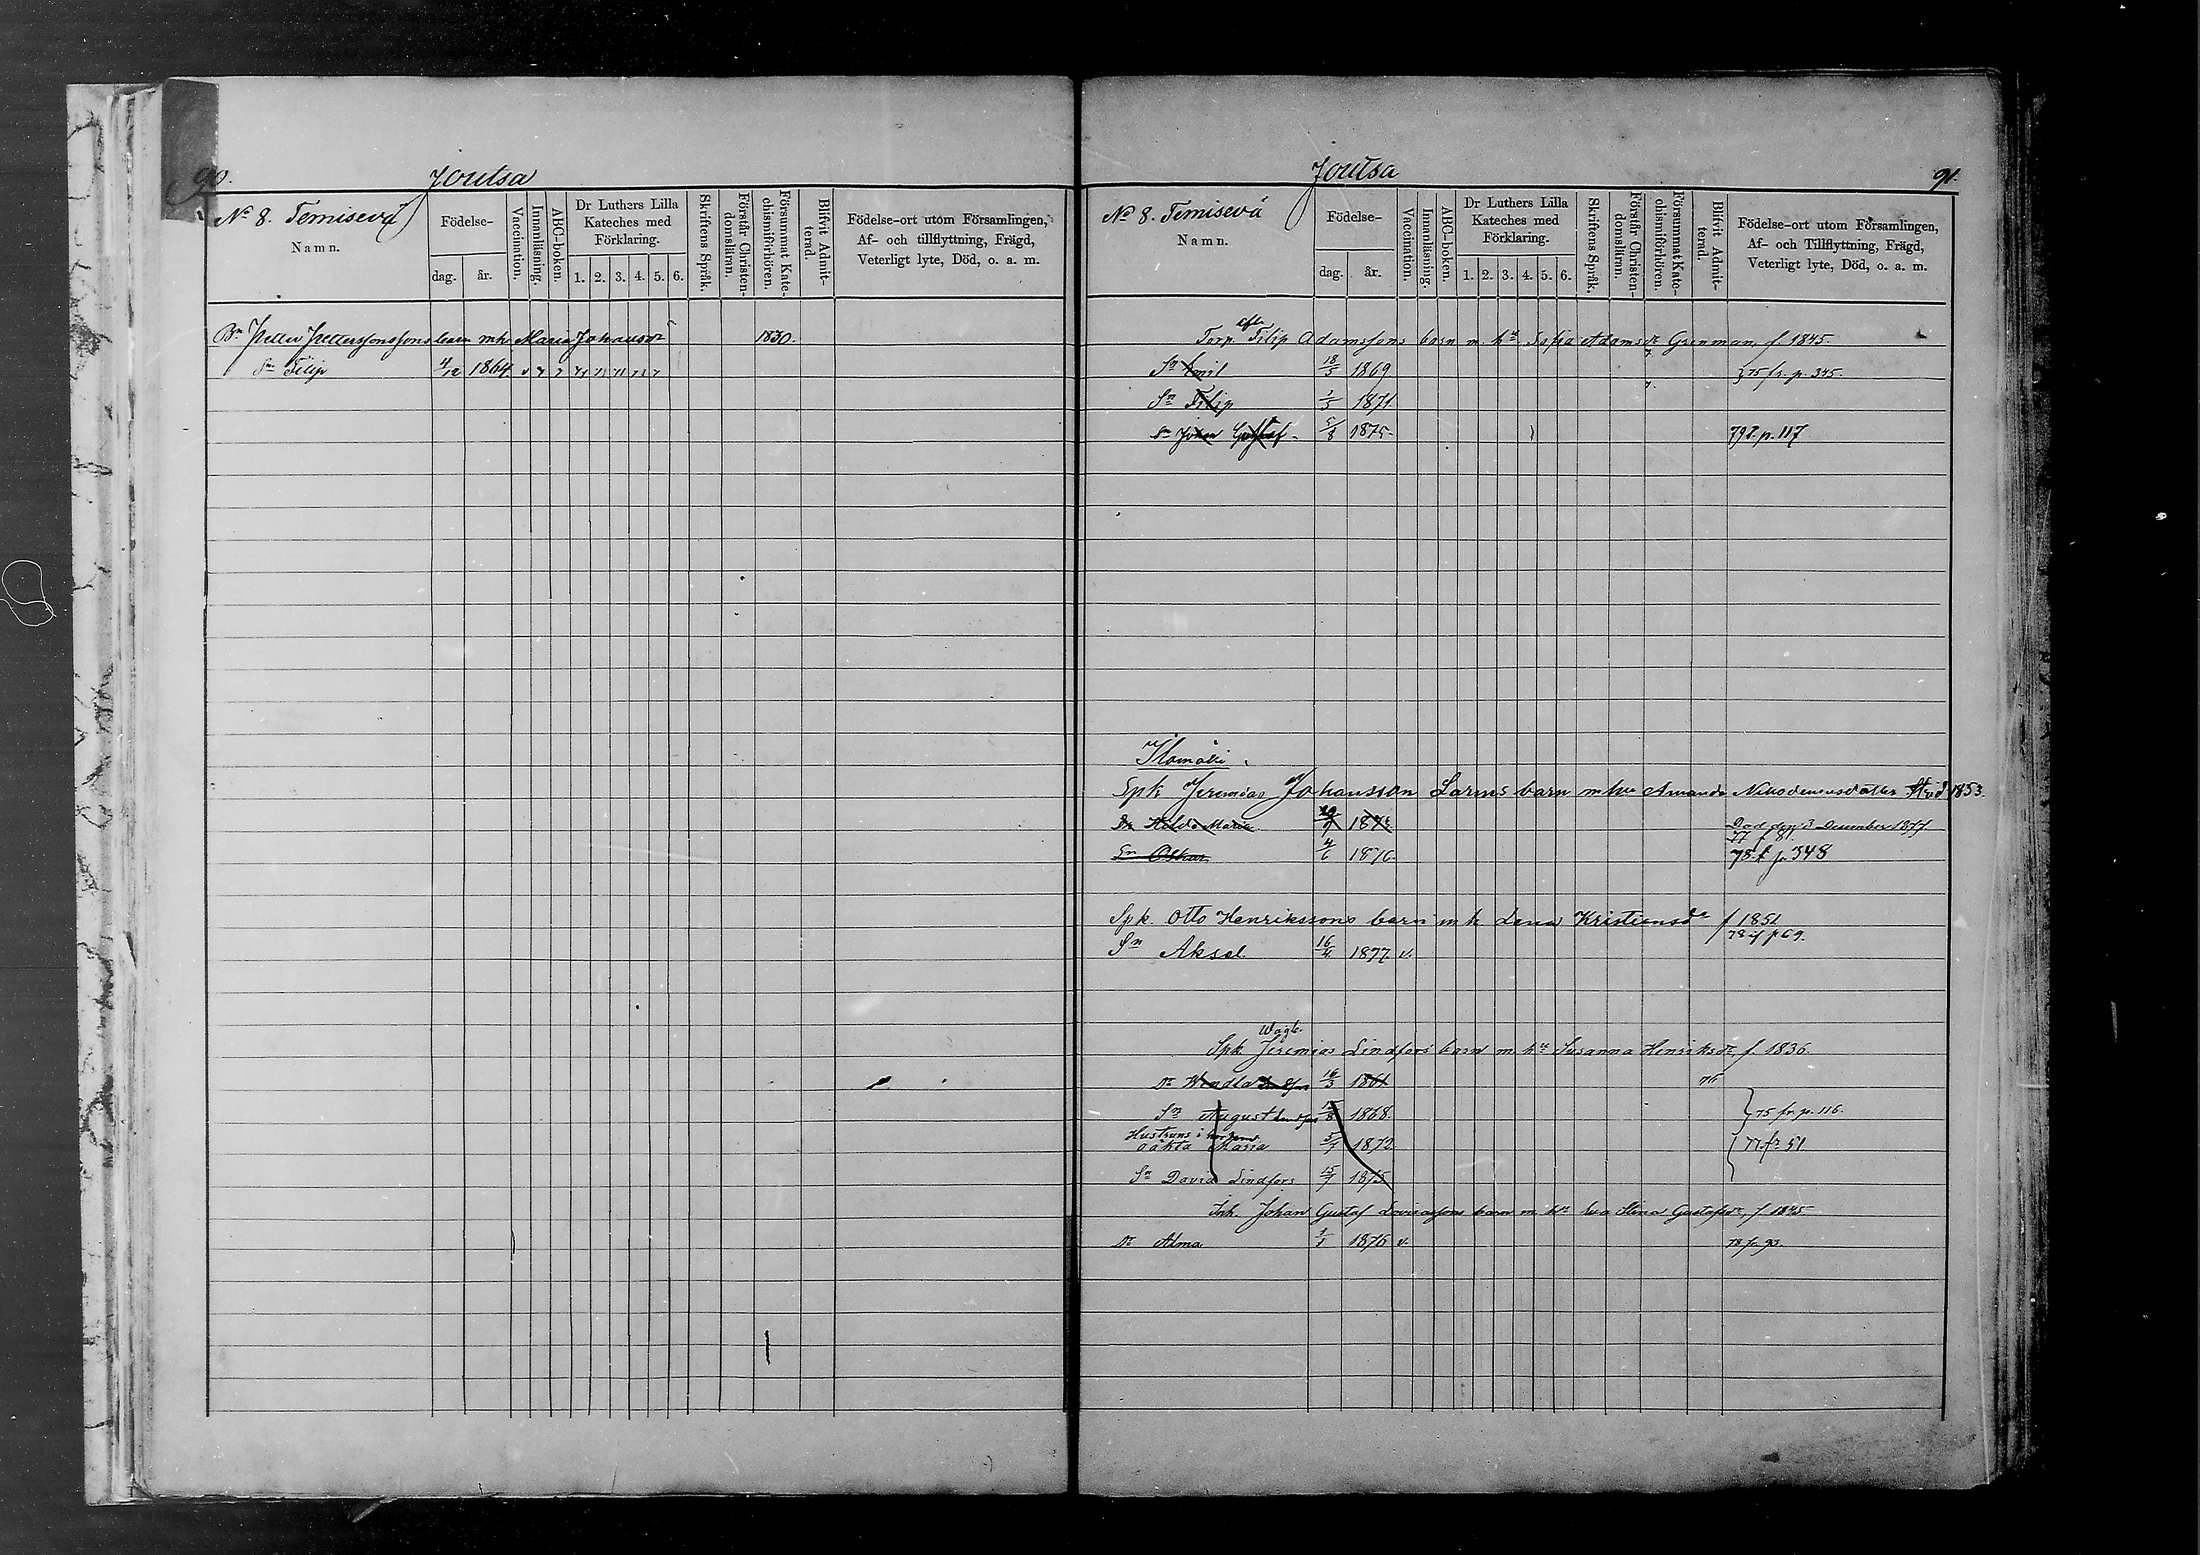 90. Joutsa
No 8. Temisevä
Namn.
Födelse-
dag. år.
Vaccination.
Innanläsning.
ABC-boken.
Dr Luthers Lilla
Kateches med
Förklaring.
1. 2. 3. 4. 5. 6.
Skriftens Språk.
Förstår Christen-
domsläran.
Försummat Kate-
chismiförhören.
Blifvit Admit-
terad.
Födelse-ort utom Församlingen,
Af- och tillflyttning, Frägd,
Veterligt lyte, Död, o. a. m.
Bn Petter Petterssons barn m h Maria Johansdr 1830.
Sn Filip 4/12 1864.
Joutsa 91.
No 8. Temisevä
Namn.
Födelse-
dag. år.
Vaccination.
Innanläsning.
ABC-boken.
Dr Luthers Lilla
Kateches med
Förklaring.
1. 2. 3. 4. 5. 6.
Skriftens Språk.
Förstår Christen-
domsläran.
Försummat Kate-
chismiförhören.
Blifvit Admit-
terad.
Födelse-ort utom Församlingen,
Af- och Tillflyttning, Frägd,
Veterligt lyte, Död, o. a. m.
Torp. Filip Adamssons barn m. hu Sofia Adamsdr Grenman, f. 1845.
Sn Emil 18/5 1869 75 fr. p. 345.
Sn Filip 1871
Sn Johan Gustaf 5/8 1875 p. 117
Ilomäki
Spk Jeremias Johansson Larms barn m hu Amanda Nikodemusdotter 1853.
Dr Hilda Maria Död den 3 December 1877.
Sn Oskar 4/6 1876. 78 f p. 348
Spk. Otto Henrikssons barn m h Lena Kristiansdr f 1851
78 if p 69.
Sn Aksel. 16/4 1877 v.
Spk Jeremias Lindfors barn m. hu Susanna Henriksdr f. 1836.
Dr Wendla 16/3 1861 76
Sn August 1868 75 fr. p. 116.
Hustruns i
oäkta Maria 5/7 1872 77 fr 51.
Sn David Lindfors 15/7 1875
Inh. Johan Gustaf barn m. hu Eva Stina Gustafsdr, f. 1845
Dr Alma 1/1 1876 v. 78 fr. 93.